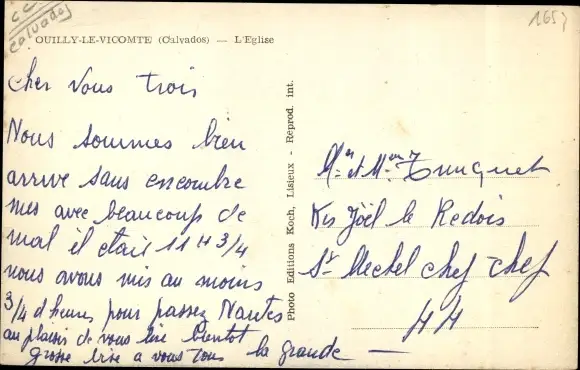 CC
Calvados
1657
OUILLY-LE-VICOMTE (Calvados) — L'Eglise
Cher Vous trois
Nous sommes bien
arrive sans encombre
mes avec beaucoup de
mal il etait 11 H 3/4
nous avons mis au moins
3/4 d heures pour passez Nantes
au plaisir de vous lire bientot
Grosse bise a vous tous la grande —
Photo Editions Koch, Lisieux - Reprod. int.
Mr et Mme
Joël le Redois
St Mechel chef chef
44